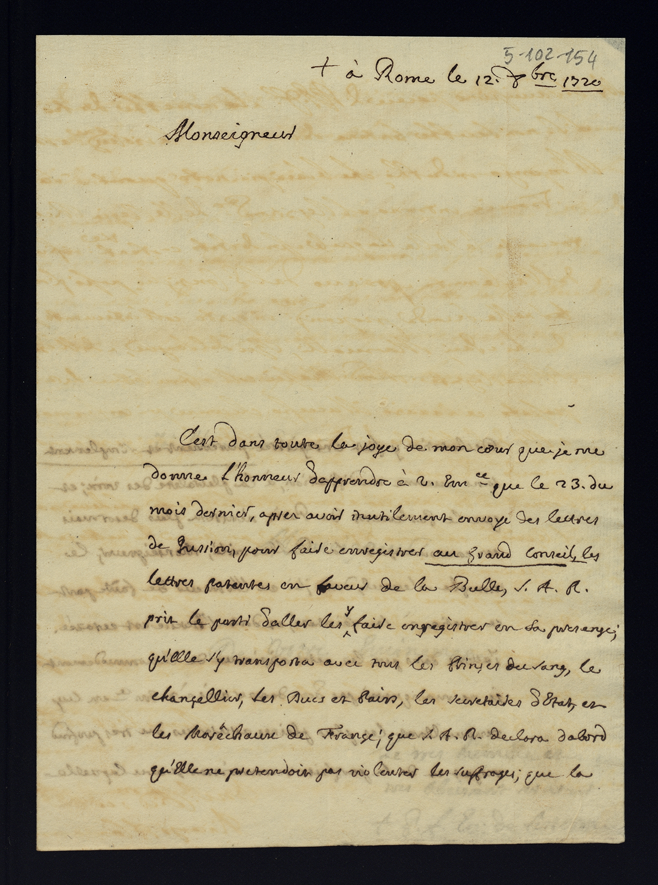 5-102-154
+ à Rome le 12. 8bre 1720
Monseigneur
C'est dans toute la joye de mon cœur que je me
donne l'Honneur d'apprendre à V. Emce que le 23. du
mois dernier, apres avoir inutilement envoyé des lettres
de Jussion, pour faire enregistrer au grand Conseil, les
lettres patentes en faveur de la Bulle, S. A. R.
prit le parti d'aller les y faire enregistrer en sa presençe;
qu'Elle s'y transporta avec tous les Prinçes du sang, le
Chançellier, les Ducs et Pairs, les secretaires d'Etat, et
les Marêchaux de Françe; que S. A. R. declara d'abord
qu'Elle ne pretendoit pas violenter les suffrages; que la